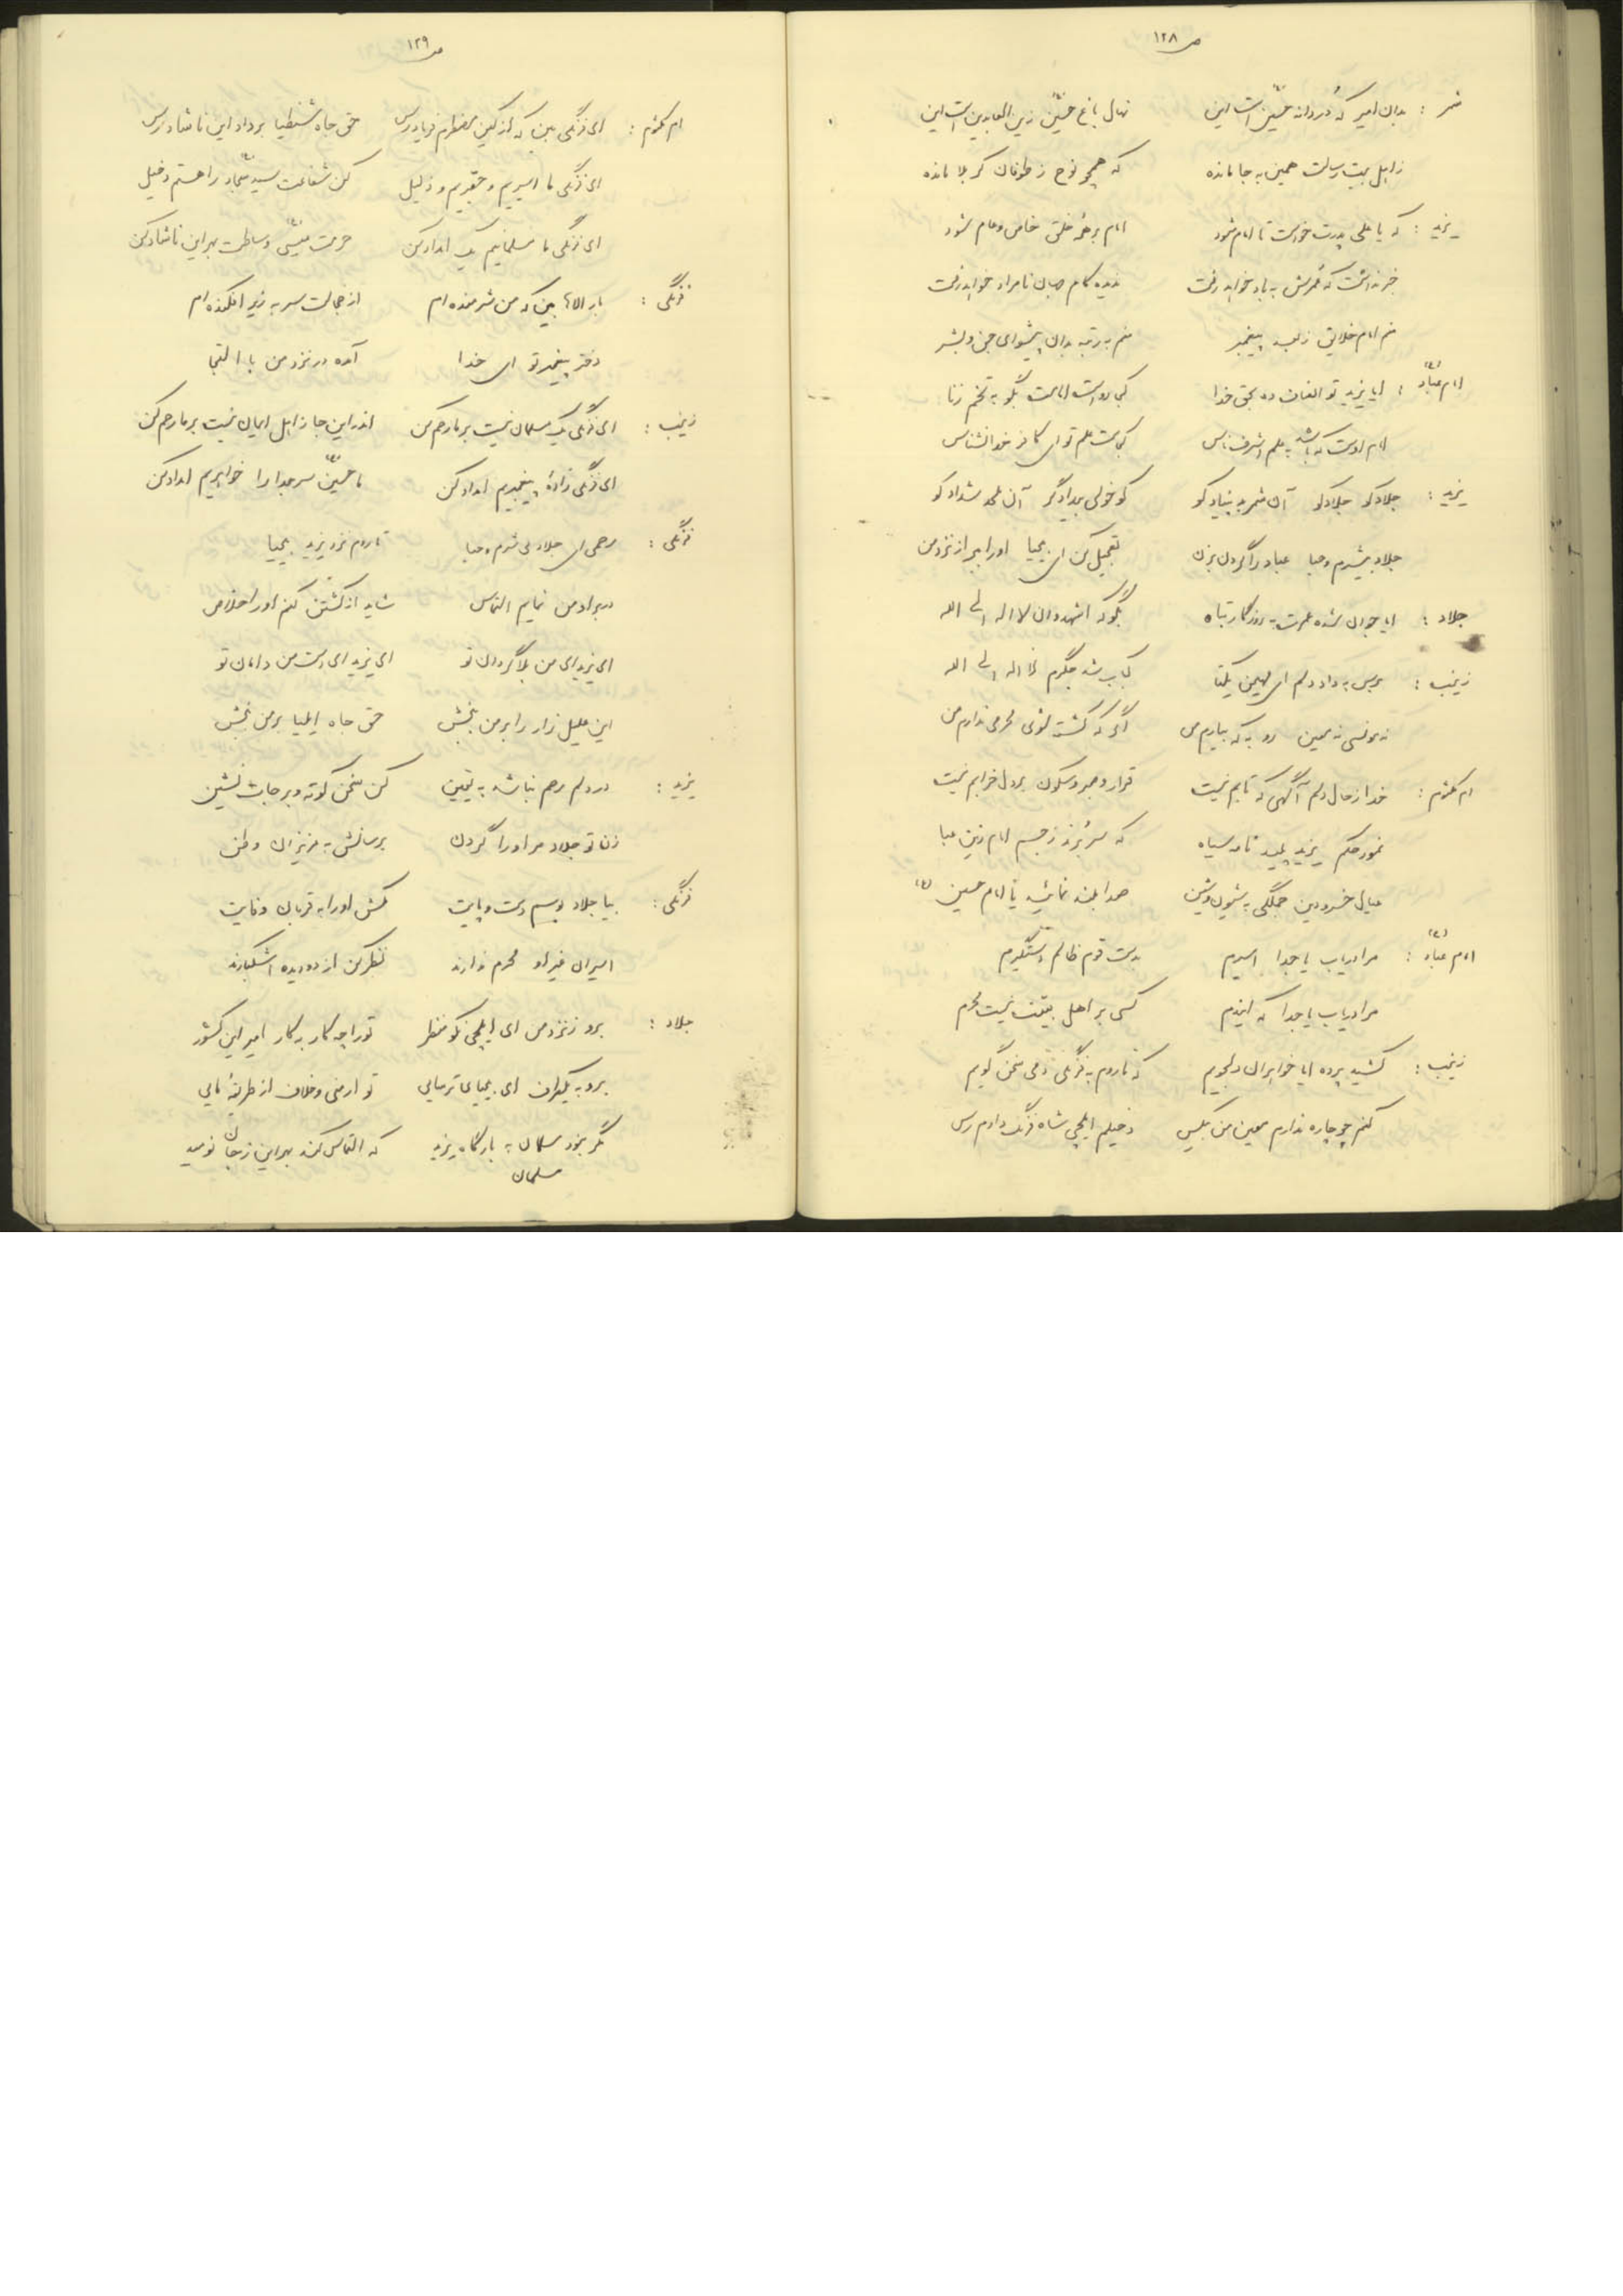 ص ۱۲۸
شمر : بدان امیر که دُردانه حسین است این نهال باغ حسین زین العابدین است این
ز اهل بیت رسالت همین به جا مانده که همچو نوح ز طوفان کربلا مانده
یزید : که یا علی پدرت خواست تا امام شود امام بر همه خلق خاص و عام شود
خبر نداشت که عمرش به باد خواهد رفت ندیده کام جهان نامراد خواهد رفت
منم امام خلایق ز بعد پیغمبر منم به رتبه بدان پیشوای جن و بشر
امام عباد (ع) : ایا یزید تو انصاف ده بحق خدا کی رواست امامت بگو به تخم زنا
امام اوست که باشد به علم اشرف ناس کجاست علم تو ای کافر خدانشناس
یزید : جلاد کو جلاد کو آن شمر بد بنیاد کو کو خولی بیدادگر آن ملحد شداد کو
جلاد بیشرم و حیا عباد را گردن بزن تعجیل کن ای بیحیا او را ببر از نزد من
جلاد : ایا جوان شده عمرت به روزگار تباه بگو که اشهد و ان لا اله الی الله
زینب : برس به داد دلم ای مهیمن یکتا کباب شد جگرم لا اله الی الله
نه مونسی نه معین رو به که بیارم من اگر که کشته شوی محرمی ندارم من
ام کلثوم : خدا ز حال دلم آگهی که تابم نیست قرار و صبر و سکون بر دل خرابم نیست
نمود حکم یزید پلید نامه سیاه که سر بُرند ز جسم امام زین عبا
عیال خسرو دین جملگی به شیون و شین صدا بلند نمائید یا امام حسین (ع)
امام عباد (ع) : مرا دریاب یا جدا اسیرم بدست قوم ظالم دستگیرم
مرا دریاب یا جدا که ایندم کسی بر اهل بیتت نیست محرم
زینب : کشید پرده ایا خواهران دلجویم که تا روم به فرنگی دمی سخن گویم
کنم چو چاره ندارم معین من بیکس دخیلم ایلچی شاه فرنگ دادم رس
ص ۱۲۹
ام کلثوم : ای فرنگی بین که از کین مضطرم فریاد رس حق جاه شنطیا بر داد این ناشاد رس
ای فرنگی ما اسیریم و حقیریم و ذلیل کن شفاعت سید سجاد را هستم دخیل
ای فرنگی ما مسلمانیم یک امداد کن حرمت عیسی وساطت بهر این ناشاد کن
فرنگی : بار الاها بین که من شرمنده ام از خجالت سر به زیر افکنده ام
دختر پیغمبر تو ای خدا آمده در نزد من با التجا
زینب : ای فرنگی یک مسلمان نیست بر ما رحم کن اندر این جا ز اهل ایمان نیست بر ما رحم کن
ای فرنگی زادهٔ پیغمبریم امداد کن ما حسین سر جدا را خواهریم امداد کن
فرنگی : رحمی ای جلاد بی شرم و حیا تا روم نزد یزید بیحیا
در بر او من نمایم التماس شاید از کشتن کنم او را خلاص
ای یزید ای من بلاگردان تو ای یزید ای دست من دامان تو
این علیل زار را بر من بخش حق جاه ایلیا بر من بخش
یزید : در دلم رحم نباشد به یقین کن سخن کوته و بر جات نشین
زن تو جلاد مر او را گردن برسانش به عزیزان وطن
فرنگی : بیا جلاد بوسم دست و پایت مکش او را به قربان وفایت
اسیران غیر او محرم ندارند نظر کن از دو دیده اشکبارند
جلاد : برو ز نزد من ای ایلچی نکو منظر تو را چه کار به کار امیر این کشور
برو به یکطرف ای بیحیای ترسایی تو ارمنی و خلاف از طریقهٔ مایی
مگر نبود مسلمان به بارگاه یزید که التماس کند بهر این ز جان نومید
مسلمان